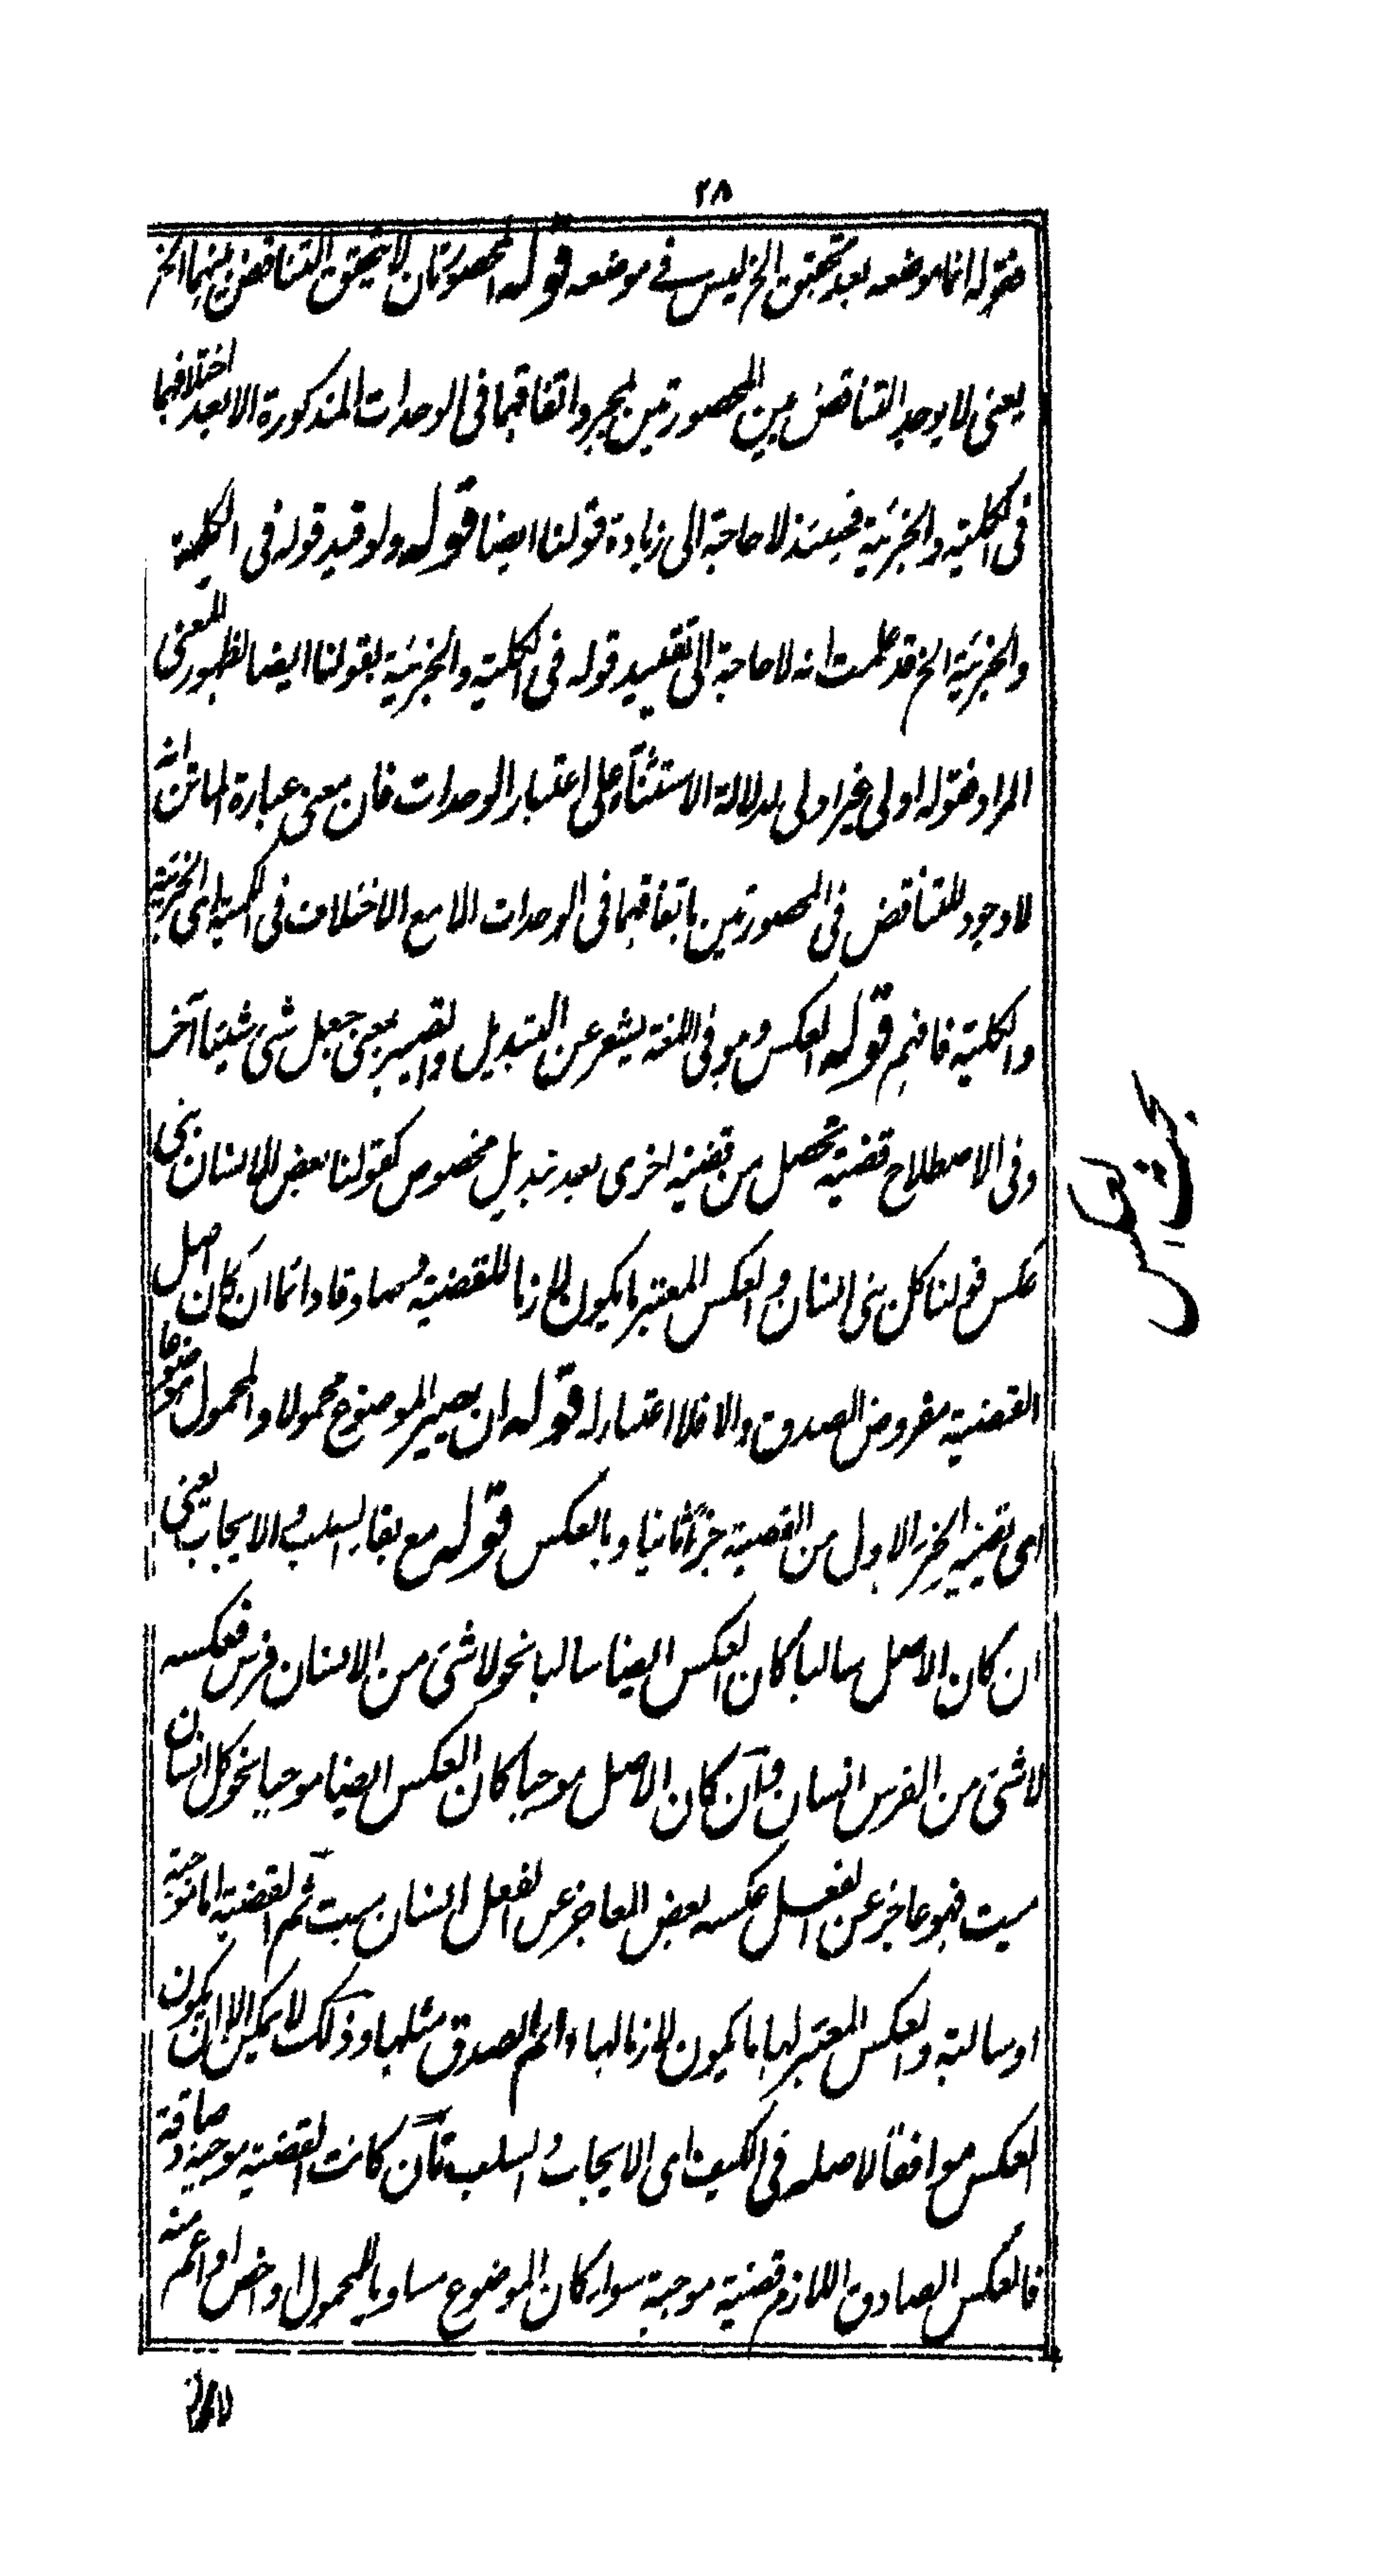 ٢٨
فقوله انما موضعه بعد تحقق الخ ليس في موضعه قوله المحصورتان لا يتحقق التناقض بينهما الخ
يعنى لا يوجد التناقض بين المحصورتين بمجرد اتفاقهما فى الوحدات المذكورة الا بعد اختلافهما
فى الكلية والجزئية فحينئذ لا حاجة الى زيادة قولنا ايضا قوله ولو قيد قوله فى الكلية
والجزئية الخ قد علمت انه لا حاجة الى تقييد قوله فى الكلية والجزئية بقولنا ايضا لظهور المعنى
المراد فقوله اولى غير اولى لدلالة الاستثناء على اعتبار الوحدات فان معنى عبارة الماتن انه
لا وجود للتناقض فى المحصورتين باتفاقهما فى الوحدات الا مع الاختلاف فى الكمية اى الجزئية
والكلية فافهم قوله العكس وهو فى اللغة يشعر عن التبديل والتصيير بمعنى جعل شئ شيئا آخر
وفى الاصطلاح قضية تحصل من قضية اخرى بعد تبديل مخصوص كقولنا بعض الانسان نبى
عكس قولنا كل نبى انسان والعكس المعتبر ما يكون لازما للقضية وصادقا دائما ان كان اصل
القضية مفروض الصدق والا فلا اعتبار له قوله ان يصير الموضوع محمولا والمحمول موضوعا
اى تصيير الجزء الاول من القضية جزأ ثانيا وبالعكس قوله مع بقاء السلب والايجاب يعنى
ان كان الاصل سالبا كان العكس ايضا سالبا نحو لا شئ من الانسان فرس فعكسه
لا شئ من الفرس انسان وان كان الاصل موجبا كان العكس ايضا موجبا نحو كل انسان
ميت فهو عاجز عن الفعل عكسه بعض العاجز عن الفعل انسان ميت ثم القضية اما موجبة
او سالبة والعكس المعتبر لها ما يكون لازما لها دائم الصدق مثلها وذلك لا يمكن الا ان يكون
العكس موافقا لاصله فى الكيف اى الايجاب والسلب فان كانت القضية موجبة صادقة
فالعكس الصادق اللازم قضية موجبة سواء كان الموضوع مساويا للمحمول او اخص او اعم منه
بحث العكس